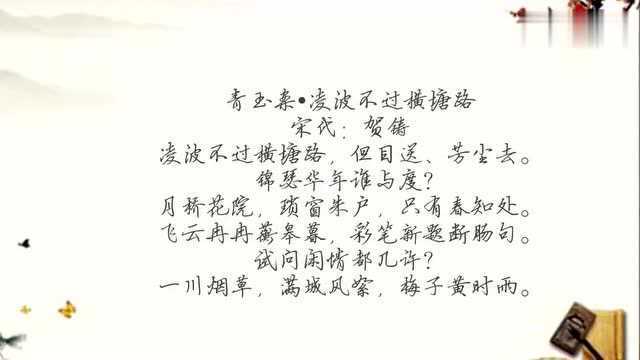 青玉案•凌波不过横塘路
宋代：贺铸
凌波不过横塘路，但目送、芳尘去。
锦瑟华年谁与度？
月桥花院，琐窗朱户，只有春知处。
飞云冉冉蘅皋暮，彩笔新题断肠句。
试问闲情都几许？
一川烟草，满城风絮，梅子黄时雨。